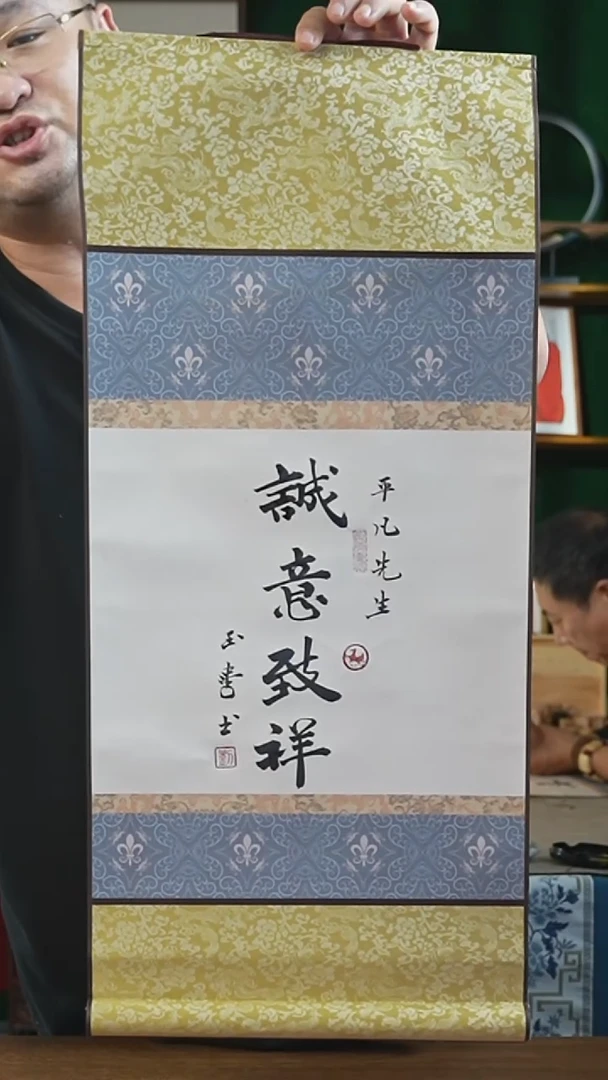 平凡先生
誠意致祥
玉書书